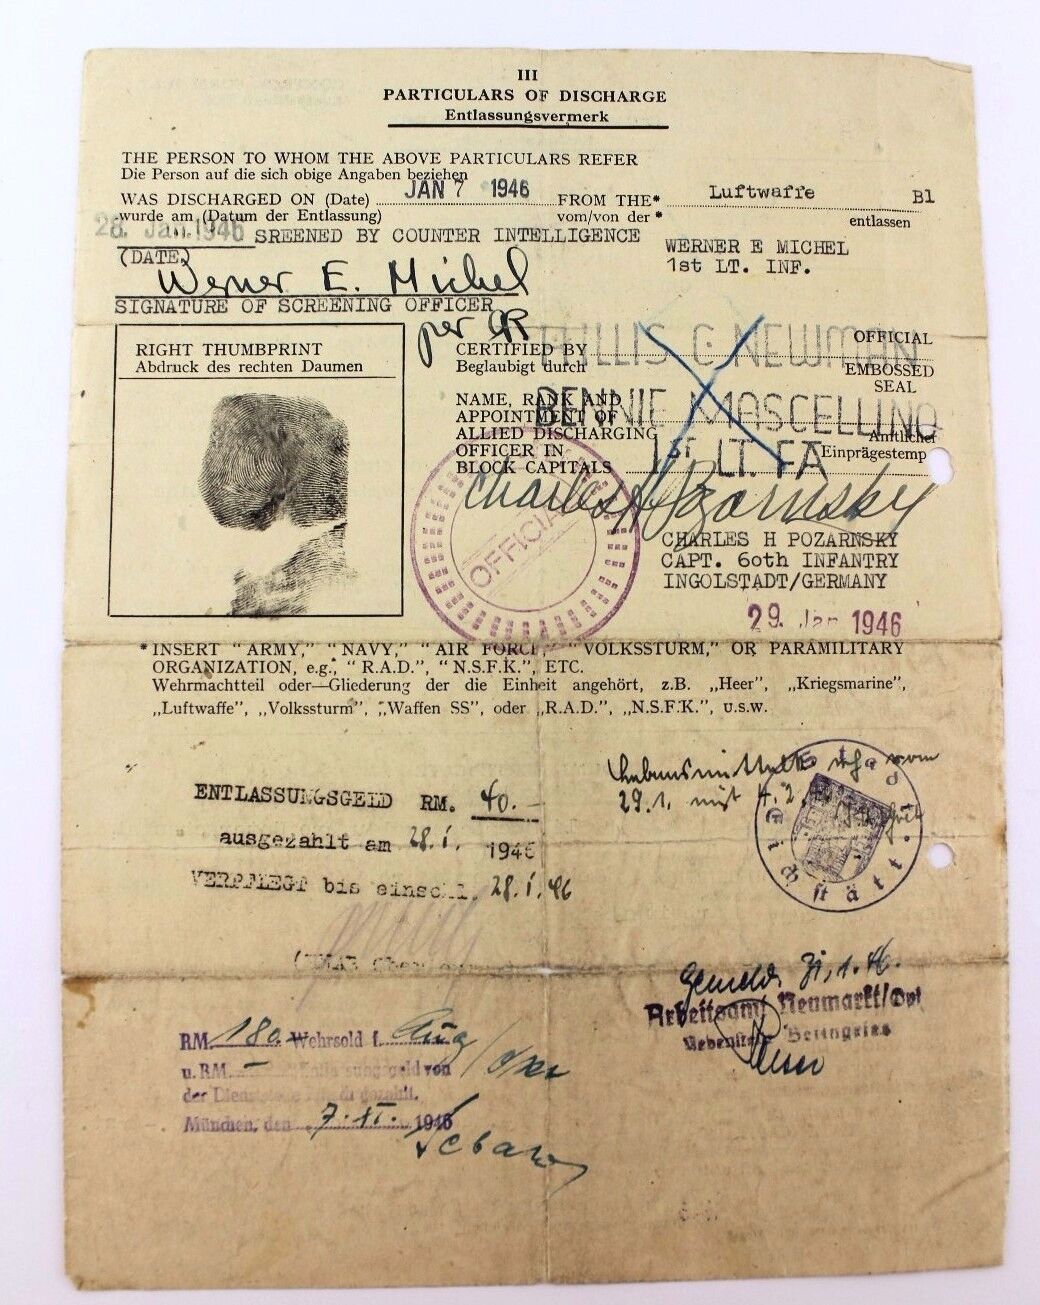 III
PARTICULARS OF DISCHARGE
Entlassungsvermerk
THE PERSON TO WHOM THE ABOVE PARTICULARS REFER
Die Person auf die sich obige Angaben beziehen
WAS DISCHARGED ON (Date) JAN 7 1946 FROM THE* Luftwaffe B1
wurde am (Datum der Entlassung) vom/von der * entlassen
28. Jan. 1946 SREENED BY COUNTER INTELLIGENCE
(DATE)
WERNER E MICHEL
1st LT. INF.
Werner E. Michel
SIGNATURE OF SCREENING OFFICER
per
RIGHT THUMBPRINT
Abdruck des rechten Daumen
CERTIFIED BY PHILLIS C NEWMAN OFFICIAL
Beglaubigt durch EMBOSSED
SEAL
NAME, RANK AND BENNIE MASCELLINO
APPOINTMENT OF
ALLIED DISCHARGING Amtlicher
OFFICER IN 1ST LT. FA Einprägestemp
BLOCK CAPITALS
Charles H Pozarnsky
OFFICIAL
CHARLES H POZARNSKY
CAPT. 60th INFANTRY
INGOLSTADT/GERMANY
29. Jan 1946
* INSERT "ARMY," "NAVY," "AIR FORCE," "VOLKSSTURM," OR PARAMILITARY
ORGANIZATION, e.g., "R.A.D.", "N.S.F.K.", ETC.
Wehrmachtteil oder—Gliederung der die Einheit angehört, z.B. „Heer", „Kriegsmarine",
„Luftwaffe", „Volkssturm", „Waffen SS", oder „R.A.D.", „N.S.F.K.", u.s.w.
ENTLASSUNGSGELD RM. 40.-
ausgezahlt am 28.1. 1946
VERPFLEGT bis einschl. 28.1.46
29.1. mit 4.2.
Stadt Eichstätt
Gemeld. 31.1.46.
Arbeitsamt Neumarkt/Opf
Nebenstelle Beilngries
RM 180.- Wehrsold f. Aug
u. RM. - Entlassungsgeld von
der Dienststelle gezahlt.
München, den 7.XI. 1946